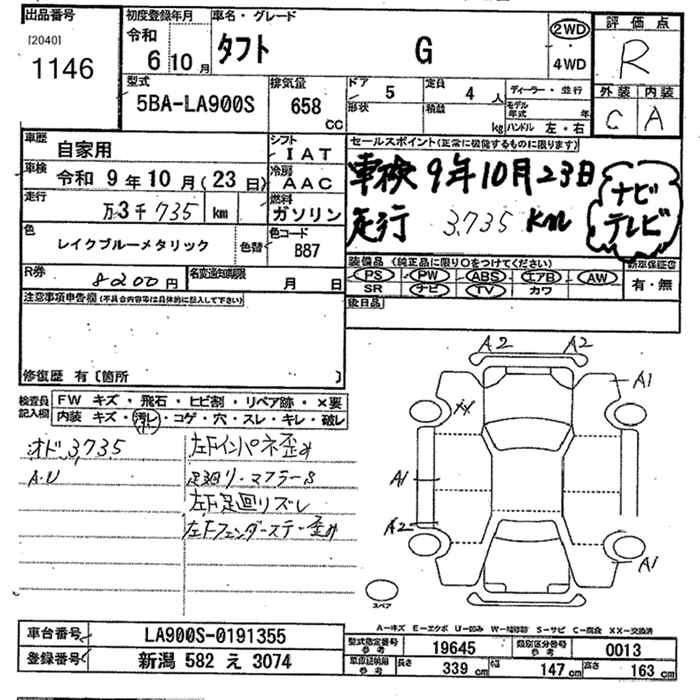 出品番号
[2040]
1146
初度登録年月
令和
6年10月
車名・グレード
タフト G
2WD
4WD
評価点
R
外装 内装
C A
型式
5BA-LA900S
排気量
658 CC
ドア 5
形状
定員 4 人
積載 kg
ディーラー・並行
モデル年式 年
ハンドル 左・右
車歴
自家用
シフト
IAT
車検
令和 9年10月(23日)
冷房
AAC
走行
万3千735 km
燃料
ガソリン
色
レイクブルーメタリック
色替
色コード
B87
R券
8200円
名変通知期限
月 日
セールスポイント(正常に機能するものに限ります)
車検 9年10月23日
走行 3,735 km
ナビ
テレビ
装備品(純正品に限り○をつけてください)
PS PW ABS エアB AW
SR ナビ TV カワ
新車保証書
有・無
後日品
注意事項申告欄(不具合内容等は具体的に記入して下さい)
修復歴 有〔箇所 〕
検査員記入欄
FW キズ・飛石・ヒビ割・リペア跡・×要
内装 キズ・汚レ・コゲ・穴・スレ・キレ・破レ
オド 3,735
A.U
左Fインパネ歪み
足廻り・マフラーS
左F足回リズレ
左Fフェンダーステー歪み
A2 A2
A1
XX
A1
A2
A1
スペア
A-キズ E-エクボ U-凹み W-補修跡 S-サビ C-腐食 XX-交換済
車台番号
LA900S-0191355
登録番号
新潟 582 え 3074
型式指定番号
参考
19645
類別区分番号
参考
0013
車庫証明用
参考
長さ 339 cm
幅 147 cm
高さ 163 cm